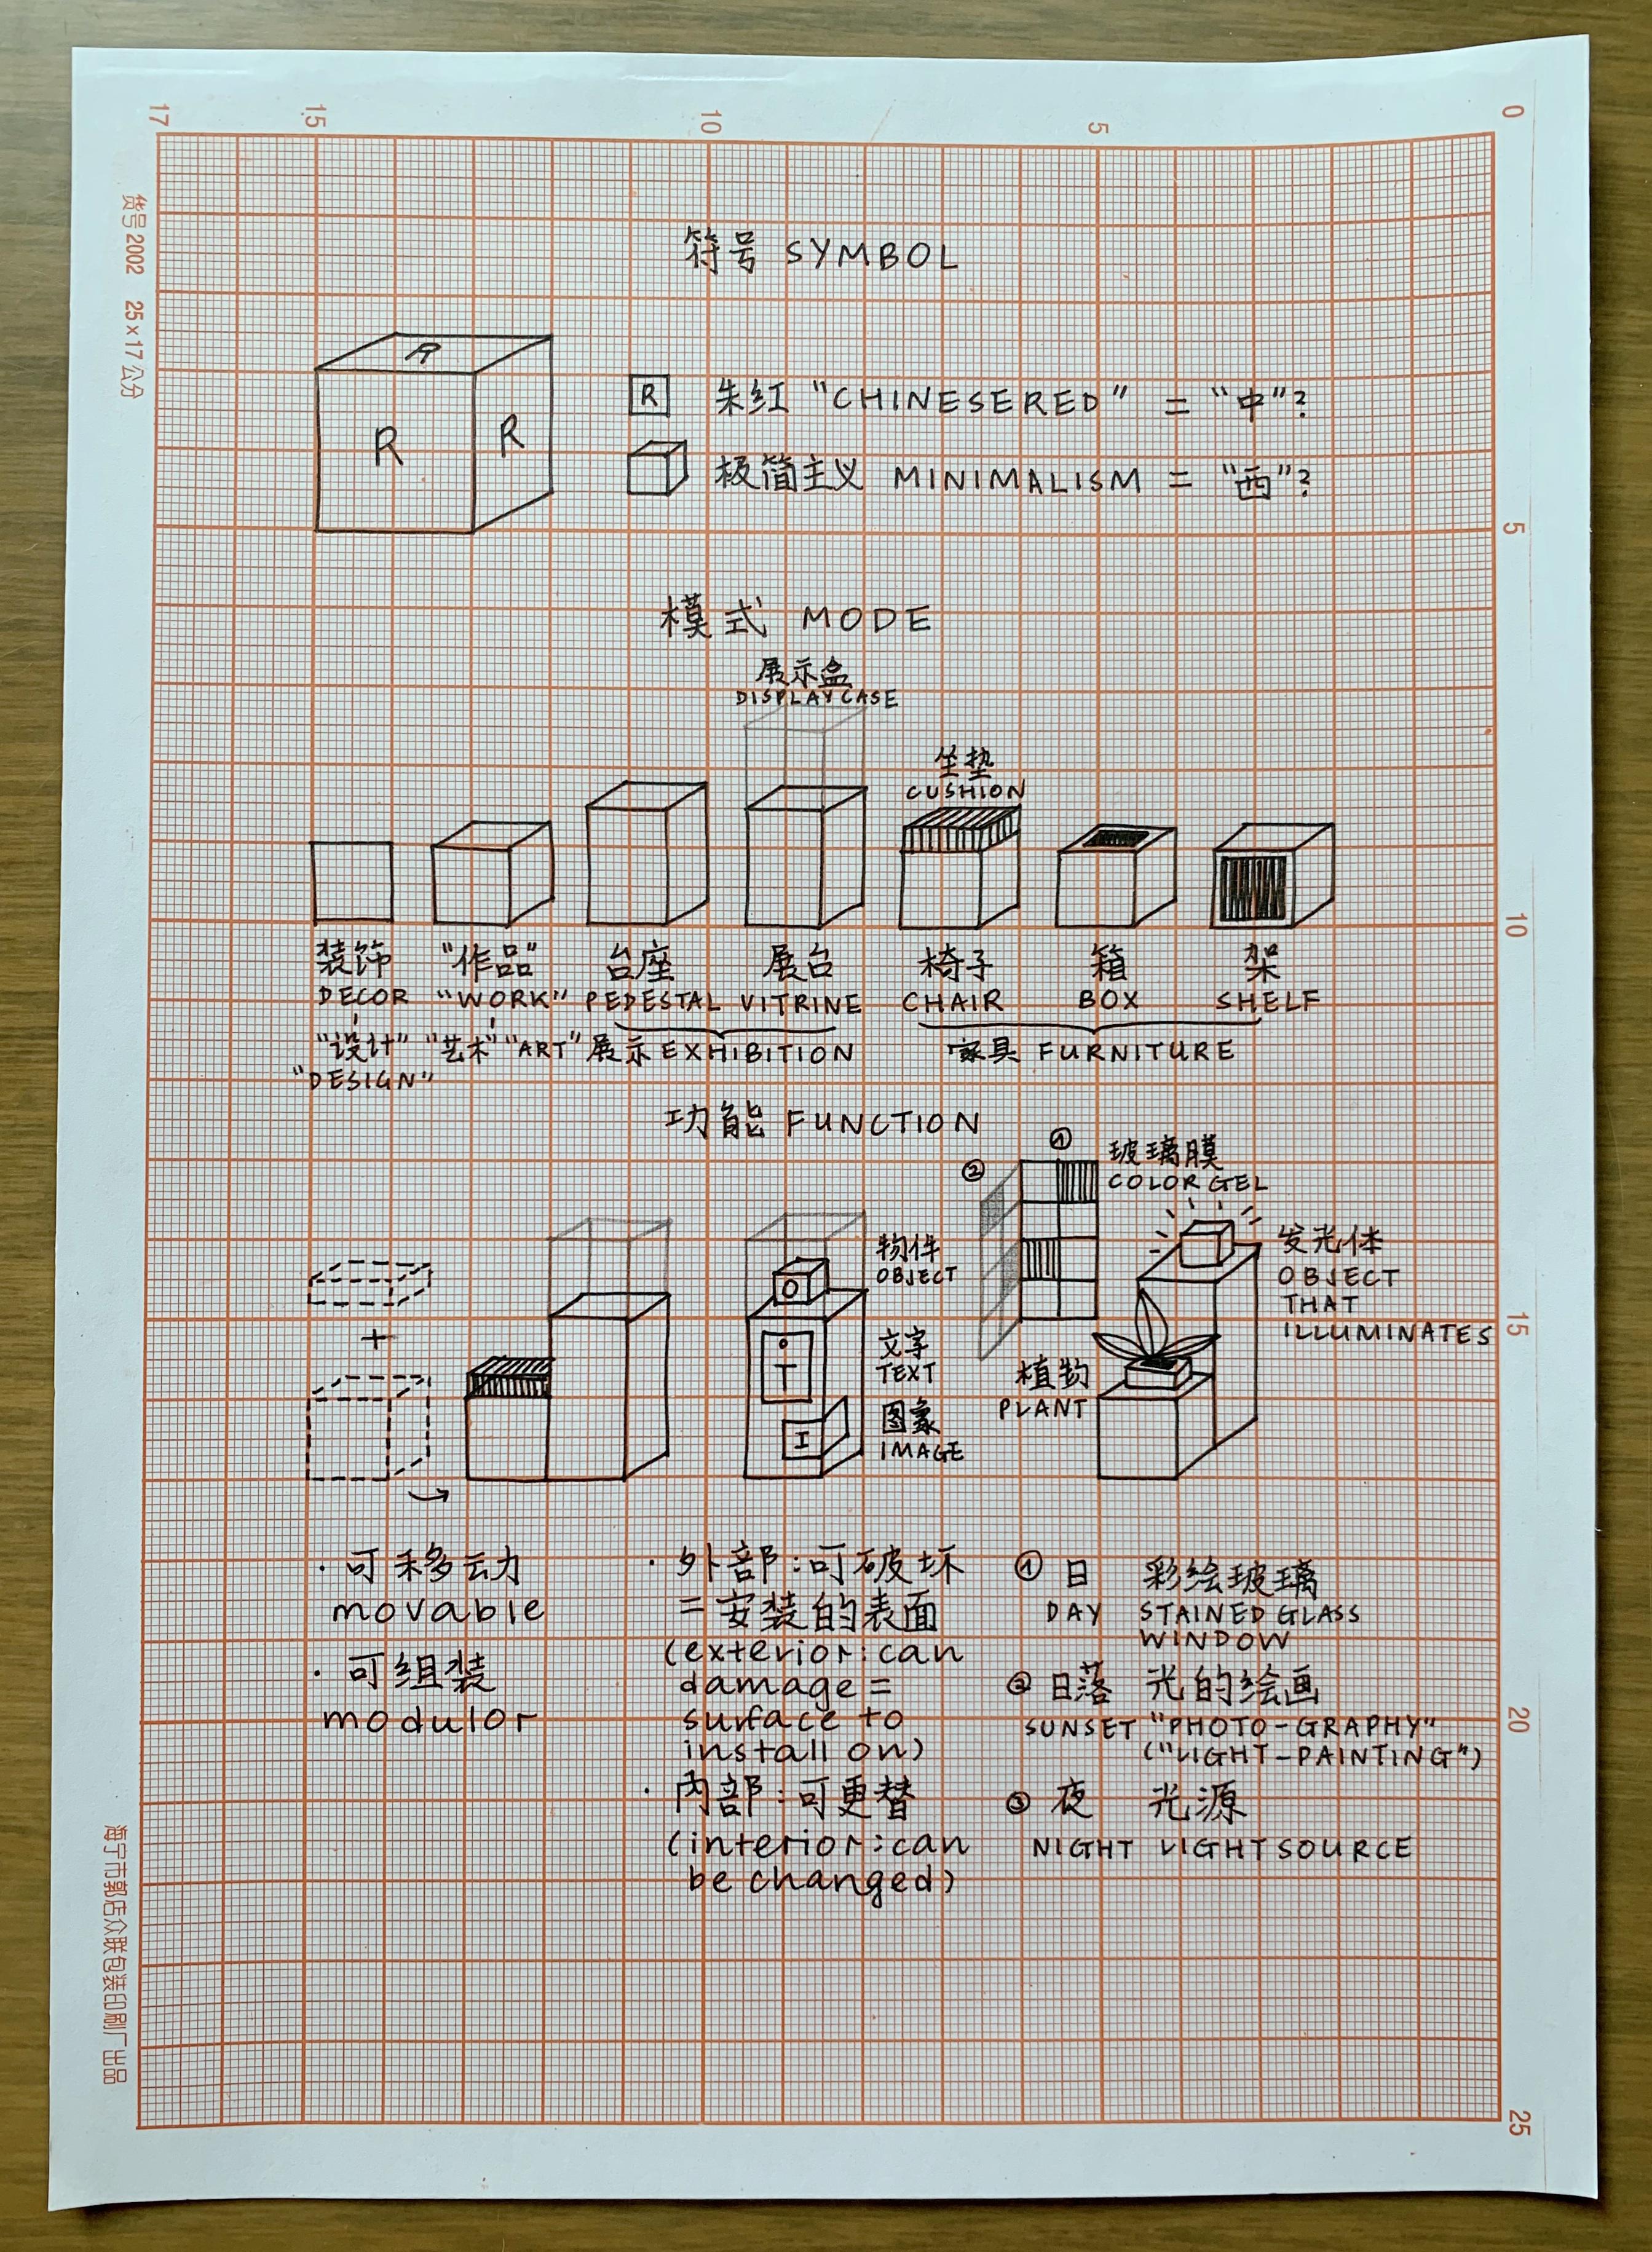 17 15 10 5 0
货号2002 25×17公分
符号 SYMBOL
R
R R
R 朱红 "CHINESERED" = "中"?
极简主义 MINIMALISM = "西"?
5
模式 MODE
展示盒
DISPLAY CASE
坐垫
CUSHION
10
装饰 "作品" 台座 展台 椅子 箱 架
DECOR "WORK" PEDESTAL VITRINE CHAIR BOX SHELF
"设计" "艺术" "ART" 展示 EXHIBITION 家具 FURNITURE
"DESIGN"
功能 FUNCTION
①
②
玻璃膜
COLOR GEL
物件
OBJECT
O
发光体
OBJECT
THAT
ILLUMINATES
15
+
文字
TEXT
T
植物
PLANT
图象
IMAGE
I
· 可移动
movable
· 可组装
modulor
· 外部:可破坏
= 安装的表面
(exterior:can
damage =
surface to
install on)
· 内部:可更替
(interior:can
be changed)
① 日 彩绘玻璃
DAY STAINED GLASS
WINDOW
② 日落 光的绘画
SUNSET "PHOTO-GRAPHY"
("LIGHT-PAINTING")
③ 夜 光源
NIGHT LIGHT SOURCE
20
25
海宁市郭店众联包装印刷厂出品